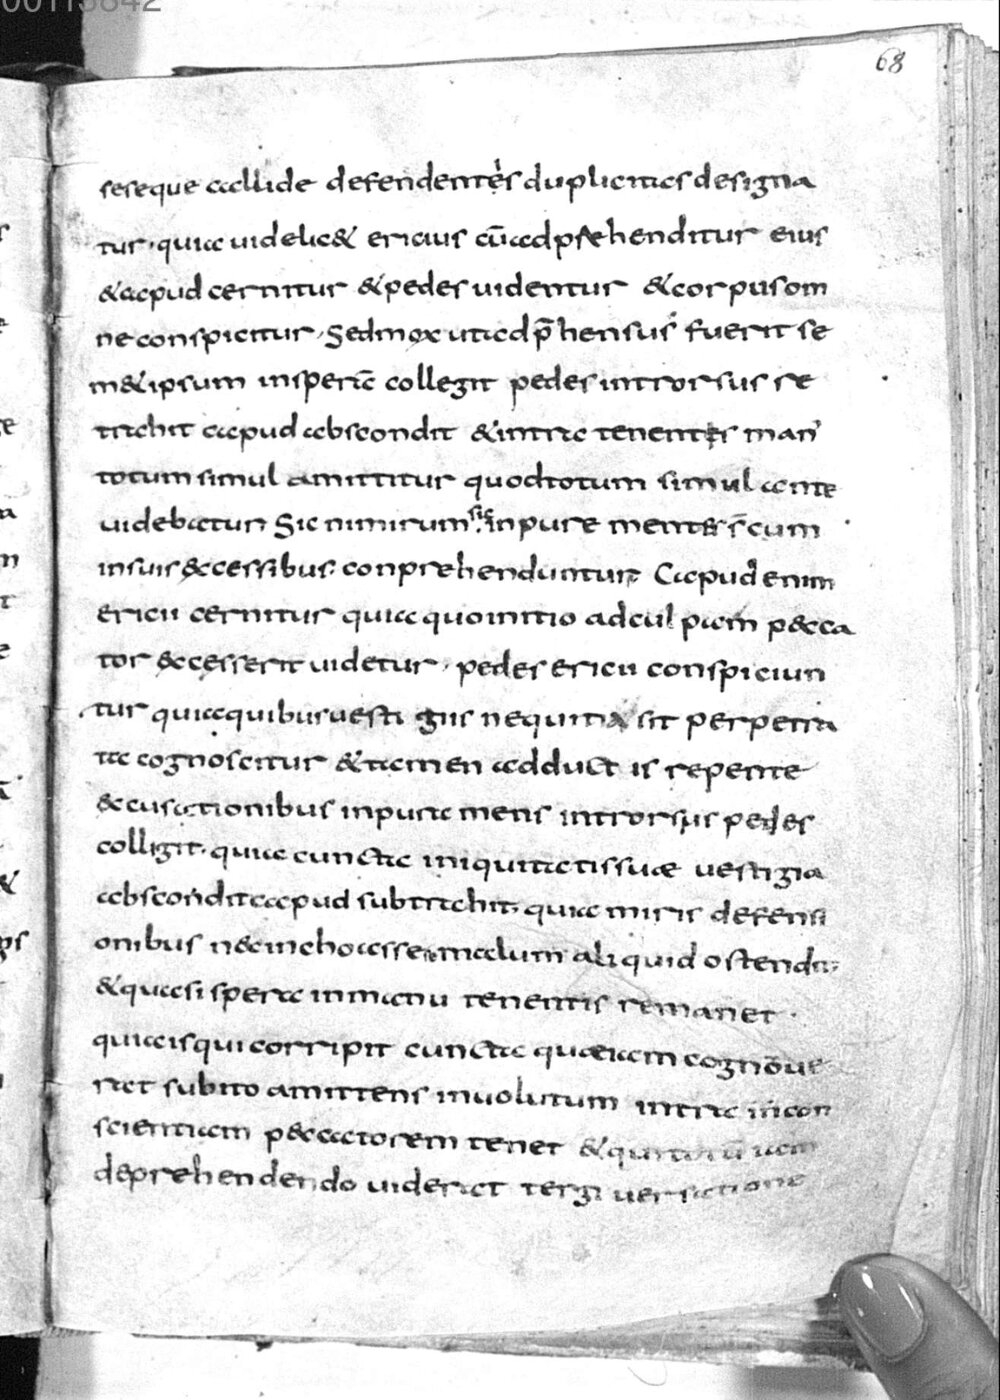 00113842
68
seseque callide defendentes duplicitas designa
tur. quia uidelic& ericius cū adp̄hehenditur eius
& capud cernitur & pedes uidentur & corpus om
ne conspicitur. Sed mox ut adp̄hensus fuerit se
m& ipsum inspera colligit pedes introrsus re
trahit capud abscondit & intra tenentis man'
totum simul amittitur quod totum simul ante
uidebatur. Sic nimirum sic inpure mentes cum
in suis &cessibus conprehenduntur. Capud enim
ericii cernitur quia quo initio ad culpam pecca
tor &cesserit uidetur. pedes ericii conspiciun
tur quia quibus uestigiis nequitia sit perpetra
ta cognoscitur & tamen adductis repente
&cusationibus inpura mens introrsus pedes
colligit. quia cuncta iniquitatis suae uestigia
abscondit capud subtrahit. quia miris defensi
onibus nec inchoasse malum aliquid ostendit.
& quasi spera in manu tenentis remanet.
quia is qui corripit cuncta quae iam cognoue
rat subito amittens inuolutum intra in con
scientiam peccatorem tenet & qui totū iam
deprehendendo uiderat tergiuersatione